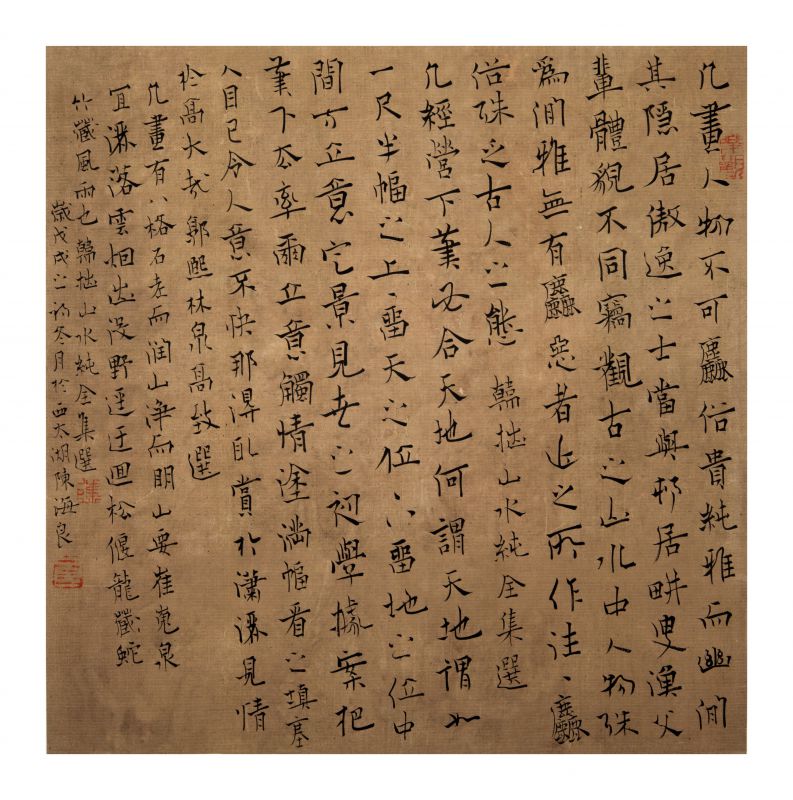 凡畫人物不可麤俗貴純雅而幽閒
其隱居傲逸之士當與邨居畊叟漁父
輩體貌不同竊觀古之山水中人物殊
爲閒雅無有麤惡者近之所作往往麤
俗殊乏古人之態 韓拙山水純全集選
凡經營下筆必合天地何謂天地謂如
一尺半幅之上上留天之位下留地之位中
間方立意定景見世之初學據案把
筆下去率爾立意觸情塗滿幅看之填塞
人目已令人意不快那得取賞於瀟灑見情
於高大哉 郭熙林泉高致選
凡畫有八格石老而潤山淨而明山要崔嵬泉
宜灑落雲烟出沒野逕迂迴松偃龍藏蛇
竹藏風雨也 韓拙山水純全集選
歲戊戌之初冬月於西太湖陳海良